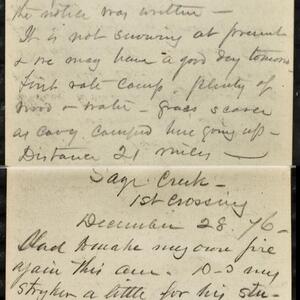 the notice was written —
It is not snowing at present
& we may have a good day tomorrow
First rate camp, plenty of
wood & water grass scarce
as Cavy. camped here going up —
Distance 21 miles —
Sage Creek —
1st Crossing
December 28. 76 —
Had to make my own fire
again this am. D–d my
stryker a little for his